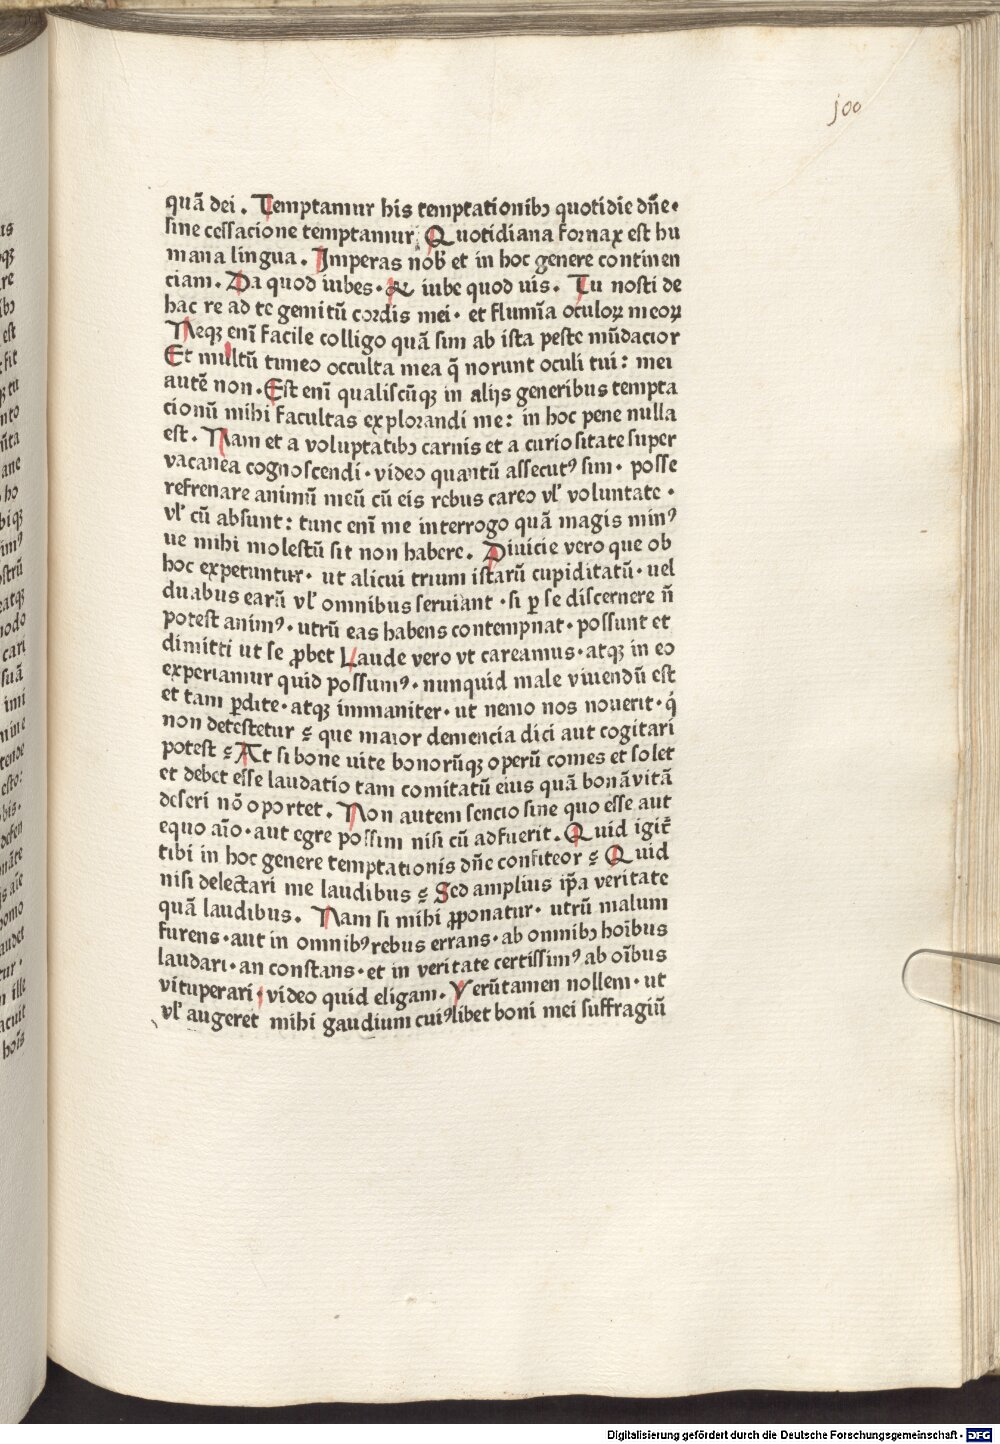 j00
quā dei. Temptamur his temptationibꝰ quotidie dn̄e·
sine cessacione temptamur. Quotidiana fornax est hu
mana lingua. Imperas nob̄ et in hoc genere continen
ciam. Da quod iubes· & iube quod uis. Tu nosti de
hac re ad te gemitū cordis mei· et flumīa oculoꝝ meoꝝ
Neqꝫ enī facile colligo quā sim ab ista peste mūdacior
Et multū timeo occulta mea q̄ norunt oculi tui: mei
autē non. Est enī qualiscūqꝫ in alijs generibus tempta
cionū mihi facultas explorandi me: in hoc pene nulla
est. Nam et a voluptatibꝰ carnis et a curiositate super
vacanea cognoscendi· video quantū assecutꝰ sim· posse
refrenare animū meū cū eis rebus careo vl̓ voluntate·
vl̓ cū absunt: tunc enī me interrogo quā magis minꝰ
ue mihi molestū sit non habere. Diuicie vero que ob
hoc expetuntur· ut alicui trium istarū cupiditatū· uel
duabus earū vl̓ omnibus seruiant· si ꝑ se discernere n̄
potest animꝰ· utrū eas habens contempnat· possunt et
dimitti ut se ꝓbet Laude vero vt careamus· atqꝫ in eo
experiamur quid possumꝰ· nunquid male viuendū est
et tam ꝑdite· atqꝫ immaniter· ut nemo nos nouerit· q̇
non detestetur? que maior demencia dici aut cogitari
potest? At si bone uite bonorūqꝫ operū comes et solet
et debet esse laudatio tam comitatū eius quā bonāvitā
deseri nō oportet. Non autem sencio sine quo esse aut
equo aīo· aut egre possim nisi cū adfuerit. Quid igit̄
tibi in hoc genere temptationis dn̄e confiteor? Quid
nisi delectari me laudibus? Sed amplius ip̄a veritate
quā laudibus. Nam si mihi ꝓponatur· utrū malum
furens· aut in omnibꝰ rebus errans· ab omnibꝰ hoībus
laudari· an constans· et in veritate certissimꝰ ab oībus
vituperari· video quid eligam. Verūtamen nollem· ut
vl̓ augeret mihi gaudium cuiꝰlibet boni mei suffragiū
Digitalisierung gefördert durch die Deutsche Forschungsgemeinschaft - DFG